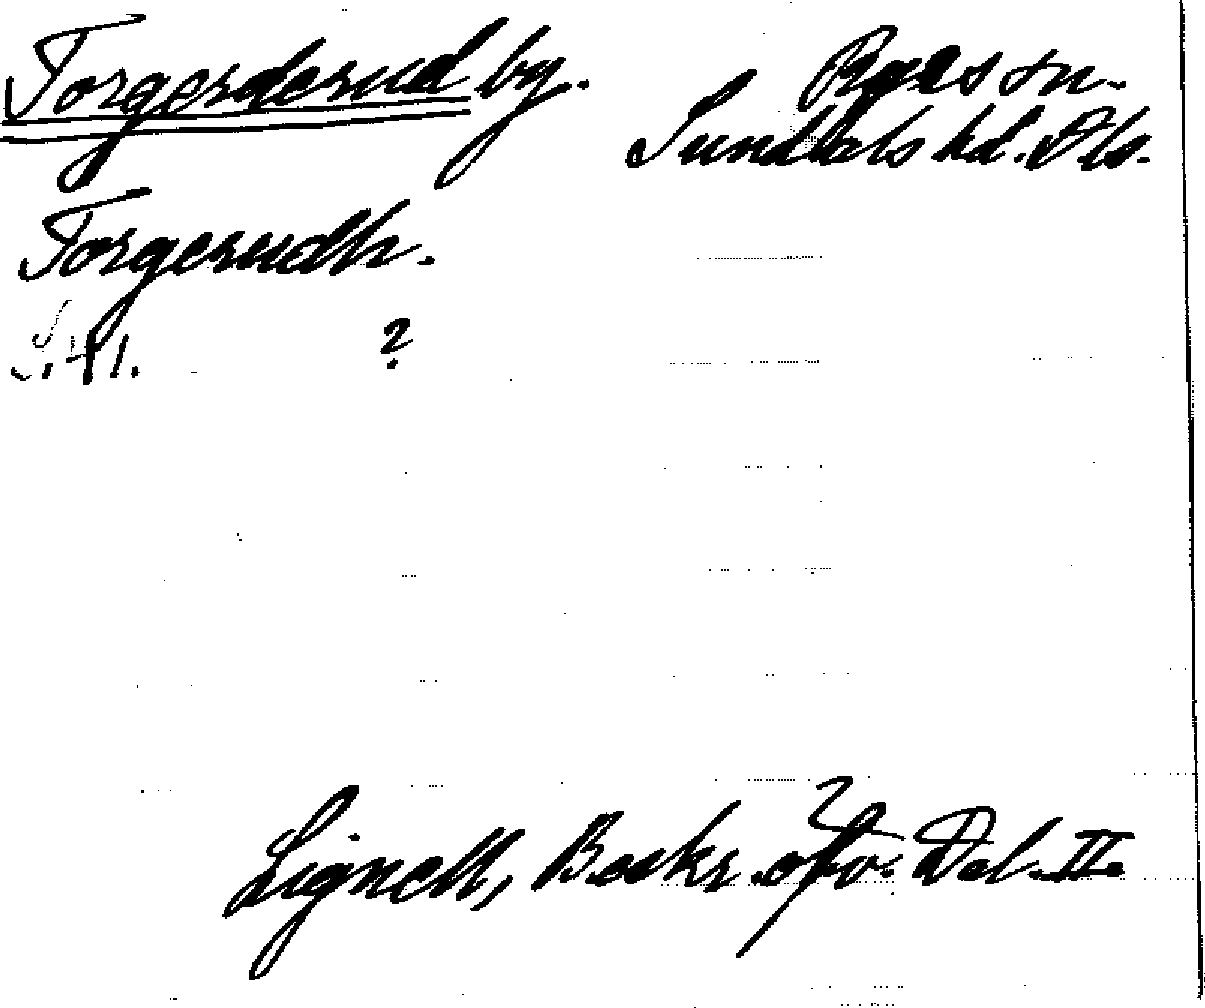 Torgerderud by. Ryrs sn.
Sundals hd. Dls.
Torgerudh.
S. 41. ?
Lignell, Beskr. öfv. Dal. II.